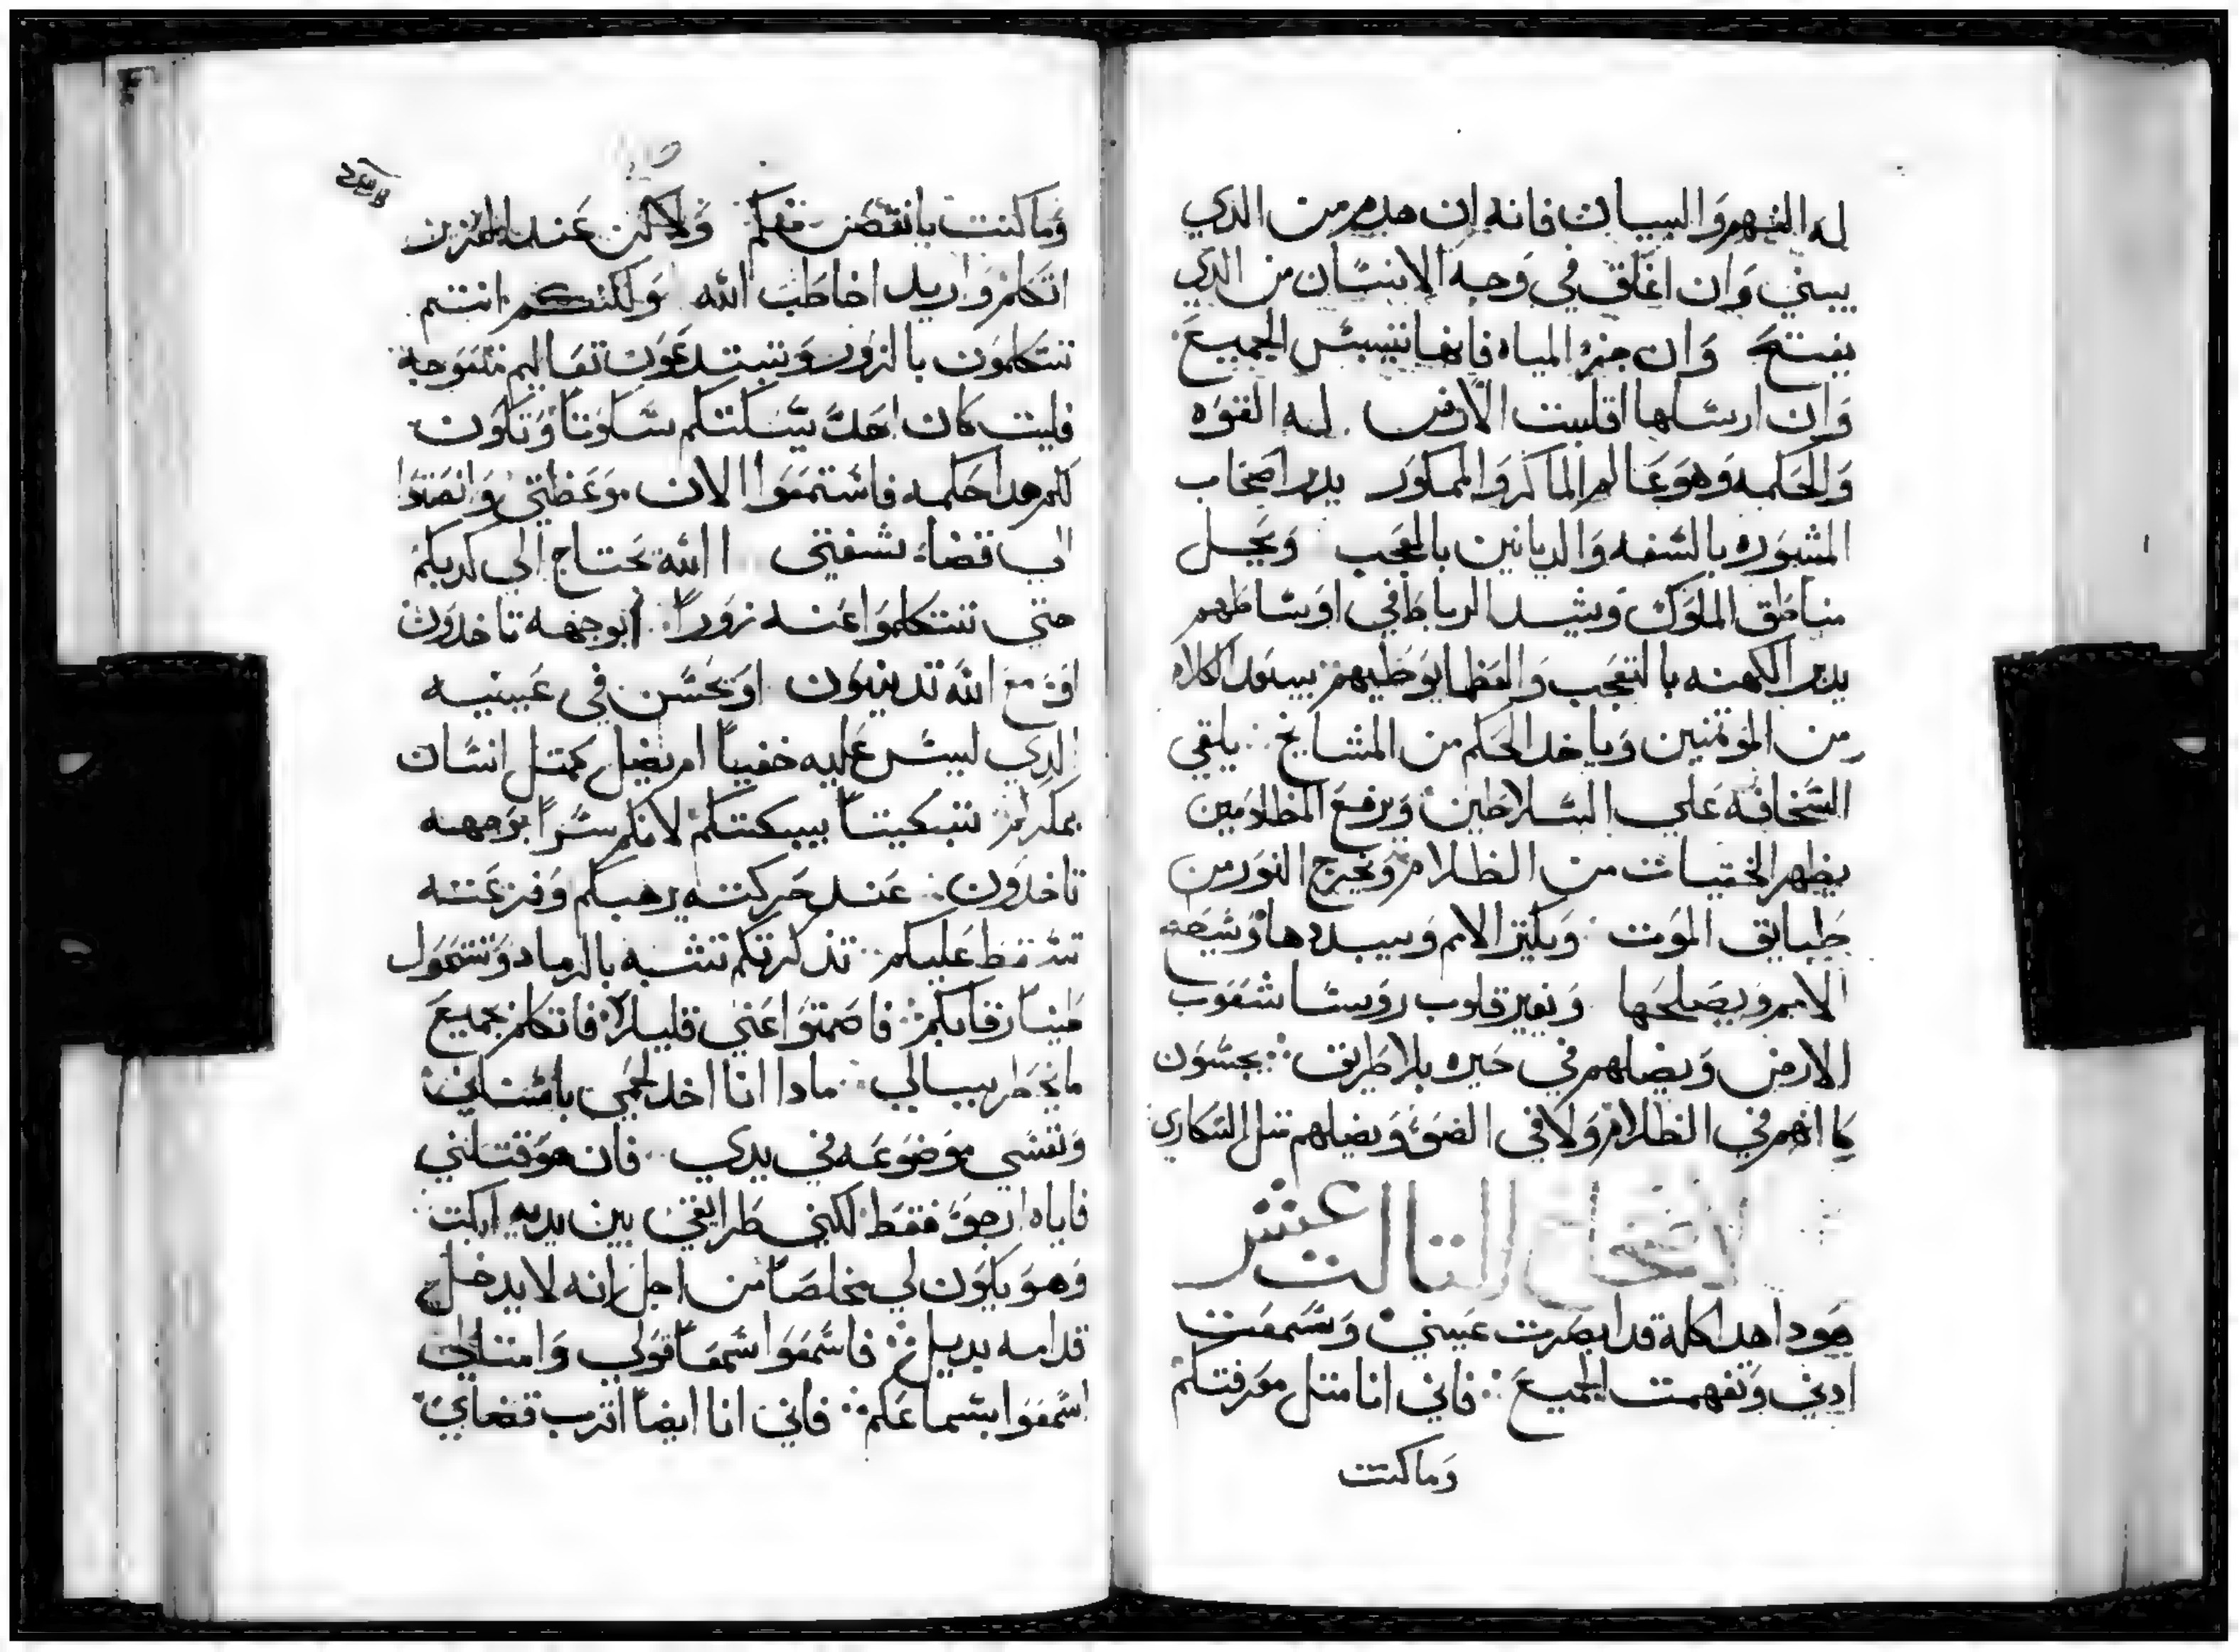 له الفهم والبيان فانه ان هدم من الدي
يبني وان اغلق في وجه الانسان من الدي
يفتح وان جزر المياه فانها تيبس الجميع
وان ارسلها اقلبت الارض له القوه
والحكمه وهو عالم الماكر والممكور يدير اصحاب
المشوره بالسفه والديانين بالعجب ويحل
مناطق الملوك ويشد الرباط في اوساطهم
يدير الكهنه بالتعجب والعظما يوطيهم يبيد الكلام
من المومنين وياخد الحكم من المشايخ يلقي
السخافه علي السلاطين ويرفع المظلومين
يظهر الخفيات من الظلام ويخرج النور من
طبايق الموت ويكثر الامم ويبيدها
الامم ويصلحها ويغير قلوب روسا شعوب
الارض ويضلهم في حيره بلا طريق يجسون
كانهم في الظلام ولا في الضوء ويضلهم مثل السكاري
الاصحاح التالت عشر
هودا هدا كله قد ابصرت عيني وسمعت
ادني وتفهمت الجميع فاني انا متل معرفتكم
وما كنت
وما كنت بانقص منكم ولاكن عند
اتكلم واريد اخاطب الله ولكنكم انتم
تتكلمون بالزور وتبتدعون تعاليم متعوجه
فليت كان احد يسكتكم سكوتا وتكون
لكم هدا حكمه فاستمعوا الان موعظتي وانصتوا
الي قضاء شفتي االله يحتاج الي كدبكم
حتي تتكلموا عنه زورا ابوجهه تاخدون
اوعن الله تدينون او يحسن في عينيه
الدي ليس عليه خفيا ام يضل كمتل انسان
بمكركم تبكيتا يبكتكم لانكم سرا بوجهه
تاخدون عند حركته يرهبكم وفزعته
تسقط عليكم تذكرتكم تتشبه بالرماد وتتحول
طينا رقابكم فاصمتوا عني قليلا فاتكلم جميع
ما يخطر ببالي مادا انا اخد لحمي باسناني
ونفسي موضوعه في يدي فان هو قتلني
فاياه ارجو فقط لكني طرايقي بين يديه ابكت
وهو يكون لي مخلصا من اجل انه لا يدخل
قدامه فاسمعوا سمعا قولي وامتالي
اسمعوا بسماعكم فاني انا ايضا اقرب قضاي